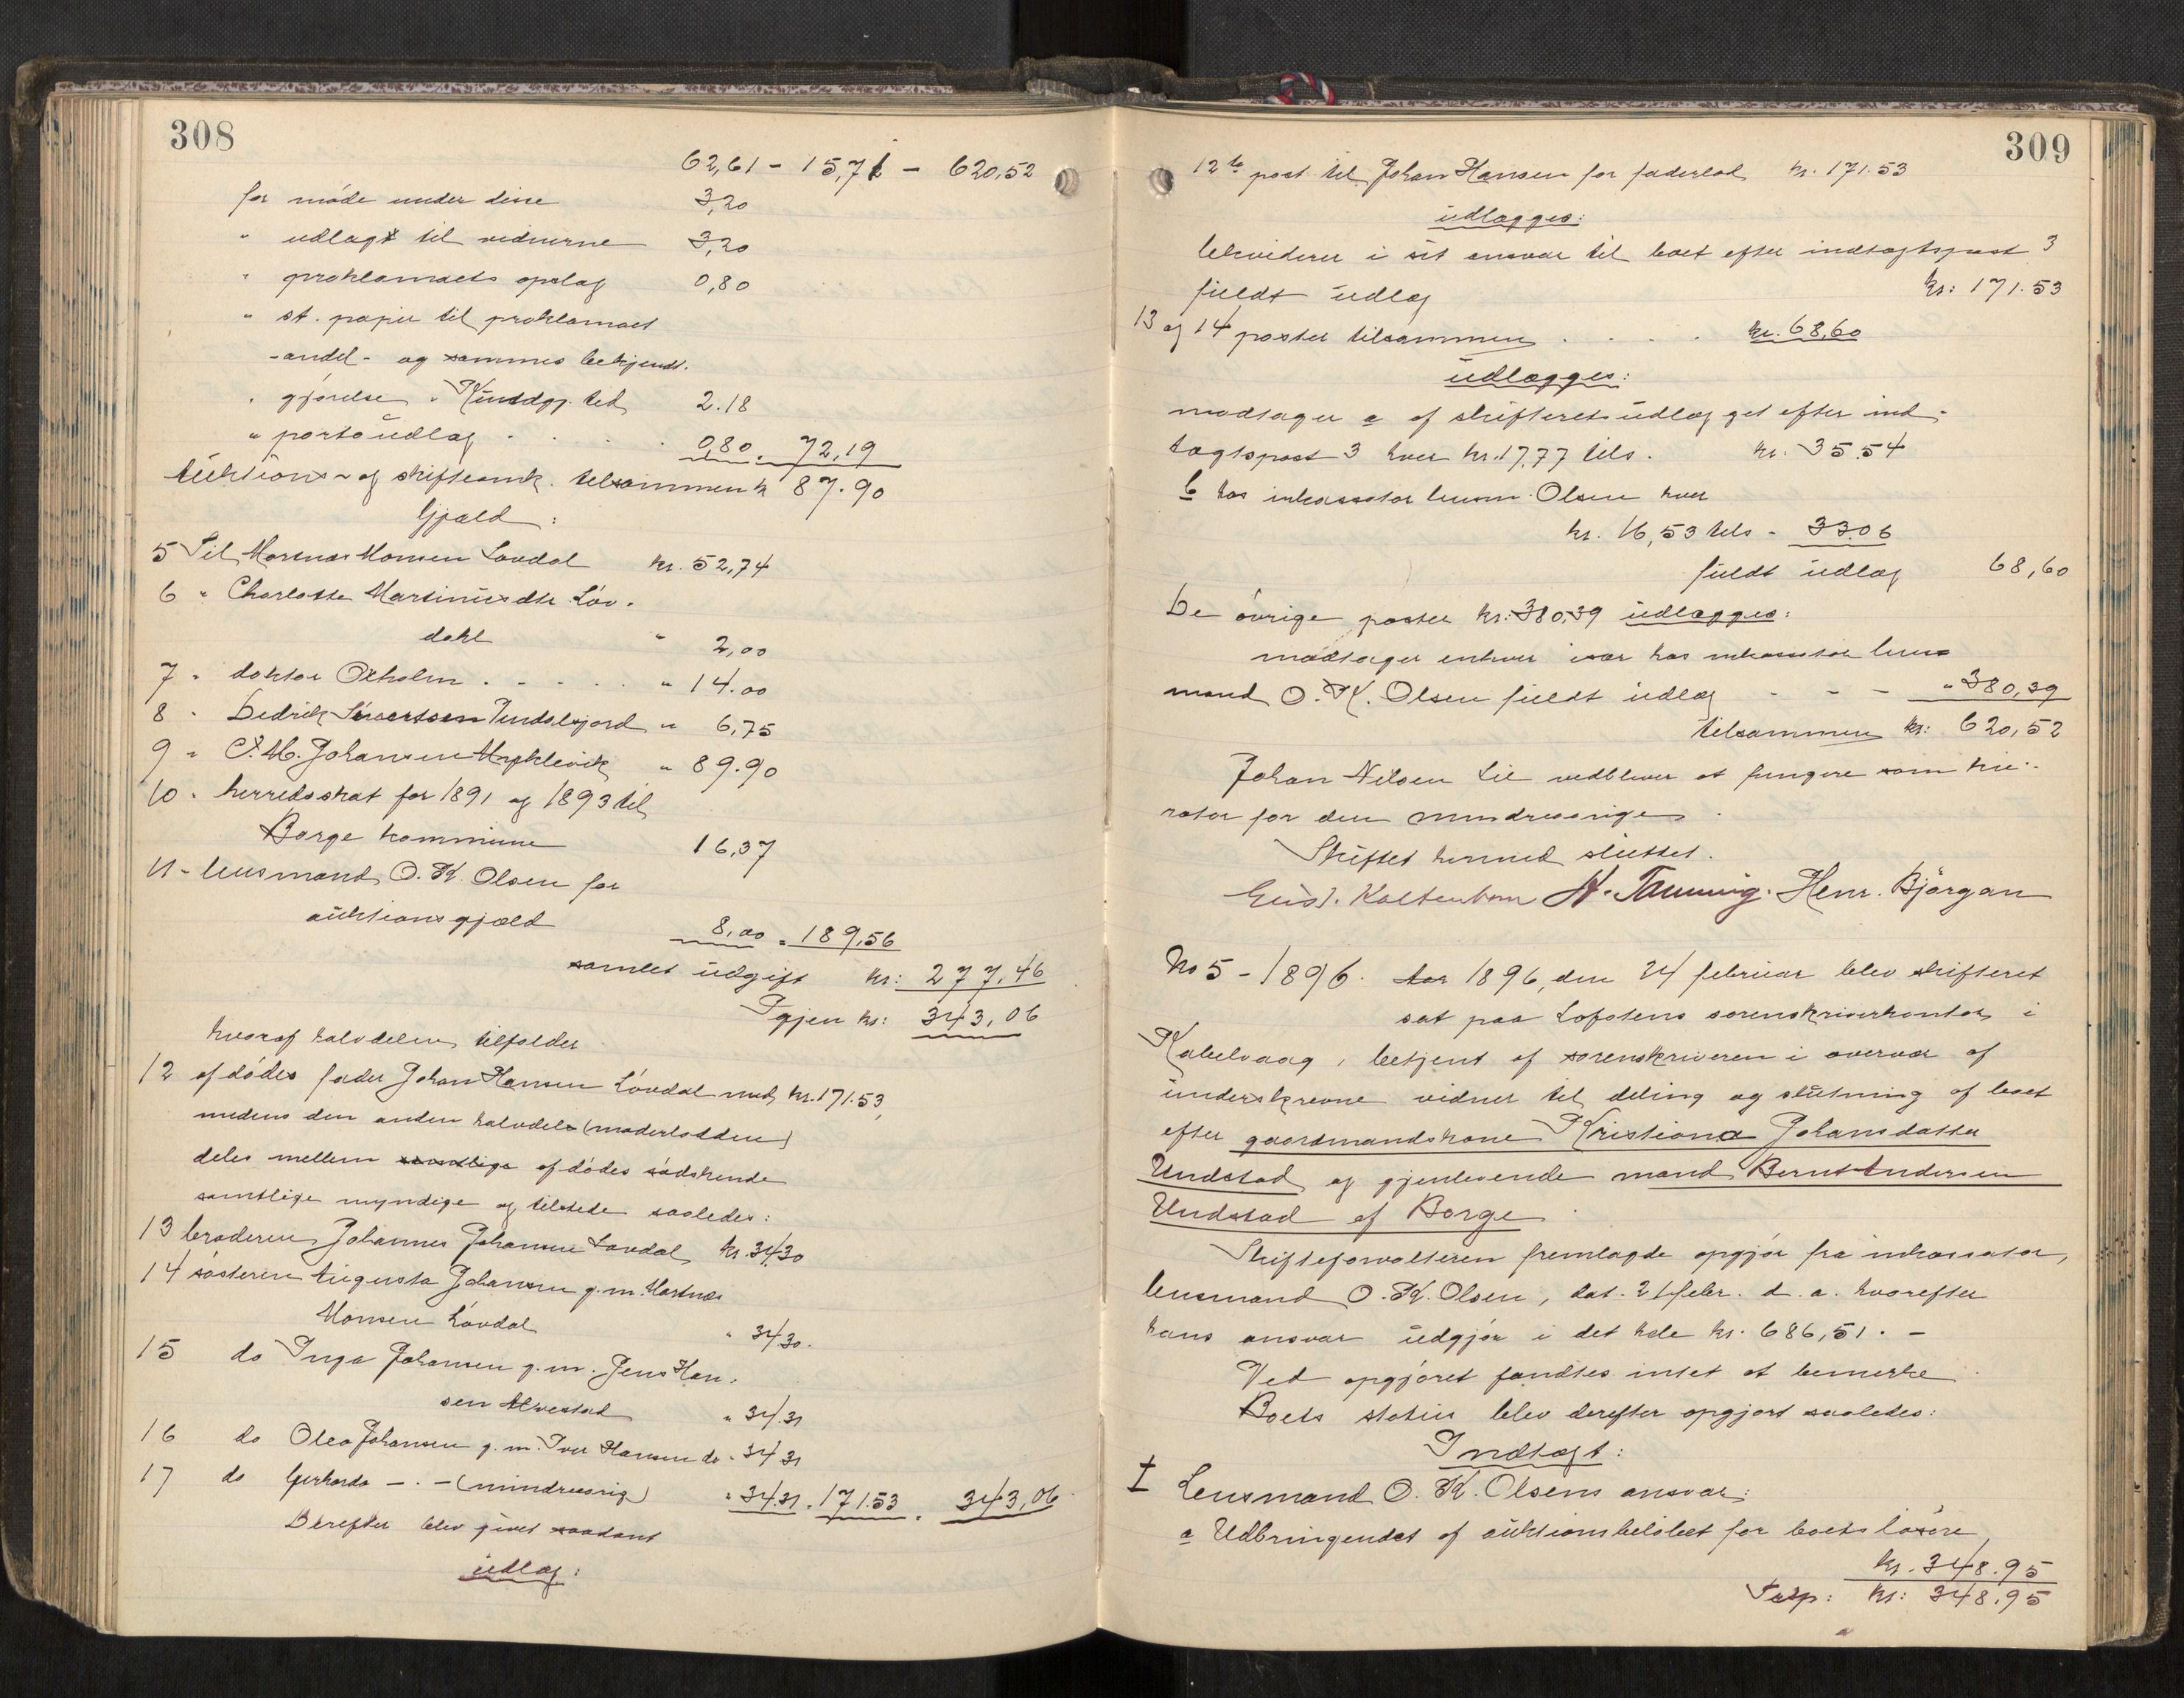 308
62,61 - 15,71 - 620,52
for möde under disse 3,20
" udlagt til vidnerne 3,20
" proklamaets opslag 0,80
" st. papir til proklamaet
-andel- og sammes bekjendt-
" gjörelse i Kundgj. tid 2.18
" portoudlæg . . . . 0,80. 72,19
auktions- og skifteomk. tilsammen k 87.90
Gjæld:
5 Til Martnus Monsen Lövdal kr. 52,74
6 " Charlotte Martinusdtr Löv-
dahl " 2,00
7 " doktor Oxholm . - . . . " 14.00
8 " Dedrik Sivertsen Tendalsfjord " 6,75
9 " C. M. Johansen Myklevik " 89.90
10 " herredsskat for 1891 og 1893 til
Borge kommune 16,37
11 - lensmand O. K. Olsen for
auktionsgjæld 8,00 = 189,56
samlet udgift kr: 277,46
Igjen kr: 343,06
hvoraf halvdelen tilfalder
12 afdödes fader Johan Hansen Lövdal med kr. 171.53,
medens den anden halvdel (moderlodden)
deles mellem samtlige afdödes södskende
samtlige myndige og tilstede saaledes:
13 broderen Johannes Johansen Lövdal kr. 34.30
14 sösteren Augusta Johansen g. m. Martnus
Monsen Lövdal " 34.30.
15 do Inga Johansen g. m. Jens Han-
sen Alvestad " 34.31
16 do Olea Johansen g. m. Iver Hansen do " 34.31
17 do Gerharda - . - (mindreaarig) " 34.31. 171.53. 343,06
Derefter blev givet saadant
udlæg:
309
12te post til Johan Hansen for faderlod kr. 171.53
udlægges:
likviderer i sit ansvar til boet efter indtægtspost 3
fuldt udlæg kr: 171.53
13 og 14 poster tilsammen . . . . kr. 68,60
udlægges:
modtager a af skifterets udlæg get efter ind-
tægtspost 3 hver kr. 17,77 tils. kr. 35.54
b hos inkassator lensm. Olsen hver
kr. 16,53 tils - 33.06
fuldt udlæg 68,60
De övrige poster kr: 380,39 udlægges:
modtager enhver især hos inkassator lens
mand O. K. Olsen fuldt udlæg - - - " 380,39
tilsammen kr: 620,52
Johan Nilsen Lie vedbliver at fungere som ku-
rator for den mindreaarige.
Skiftet hermed sluttet.
Gust. Kaltenborn N. Tanning. Henr. Björgan
No 5 - 1896. Aar 1896, den 24 februar blev skifteret
sat paa Lofotens sorenskriverkontor i
Kabelvaag, betjent af sorenskriveren i overvær af
underskrevne vidner til deling og slutning af boet
efter gaardmandskone Kristiana Johansdatter
Undstad og gjenlevende mand Bernt Andersen
Undstad af Borge.
Skifteforvalteren fremlagde opgjör fra inkassator,
lensmand O. K. Olsen, dat. 21 febr. d. a. hvorefter
hans ansvar udgjör i det hele kr. 686,51. -
Ved opgjöret fandtes intet at bemerke.
Boets status blev derefter opgjort saaledes:
Indtægt:
I Lensmand O. K. Olsens ansvar:
a Udbringendet af auktionsbelöbet for boets lösöre
kr. 348.95
Trsp: kr: 348.95